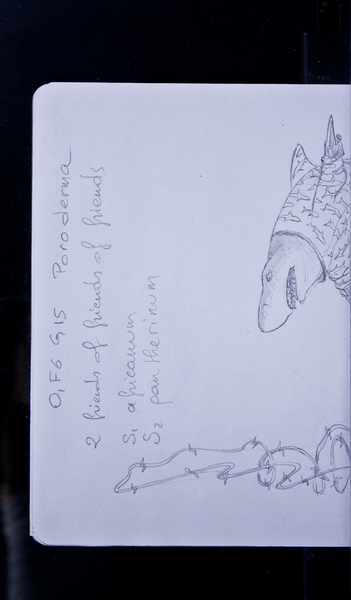 O1 F6 G15 Poroderma
2 friends of friends of friends
S1 africanum
S2 pantherinum